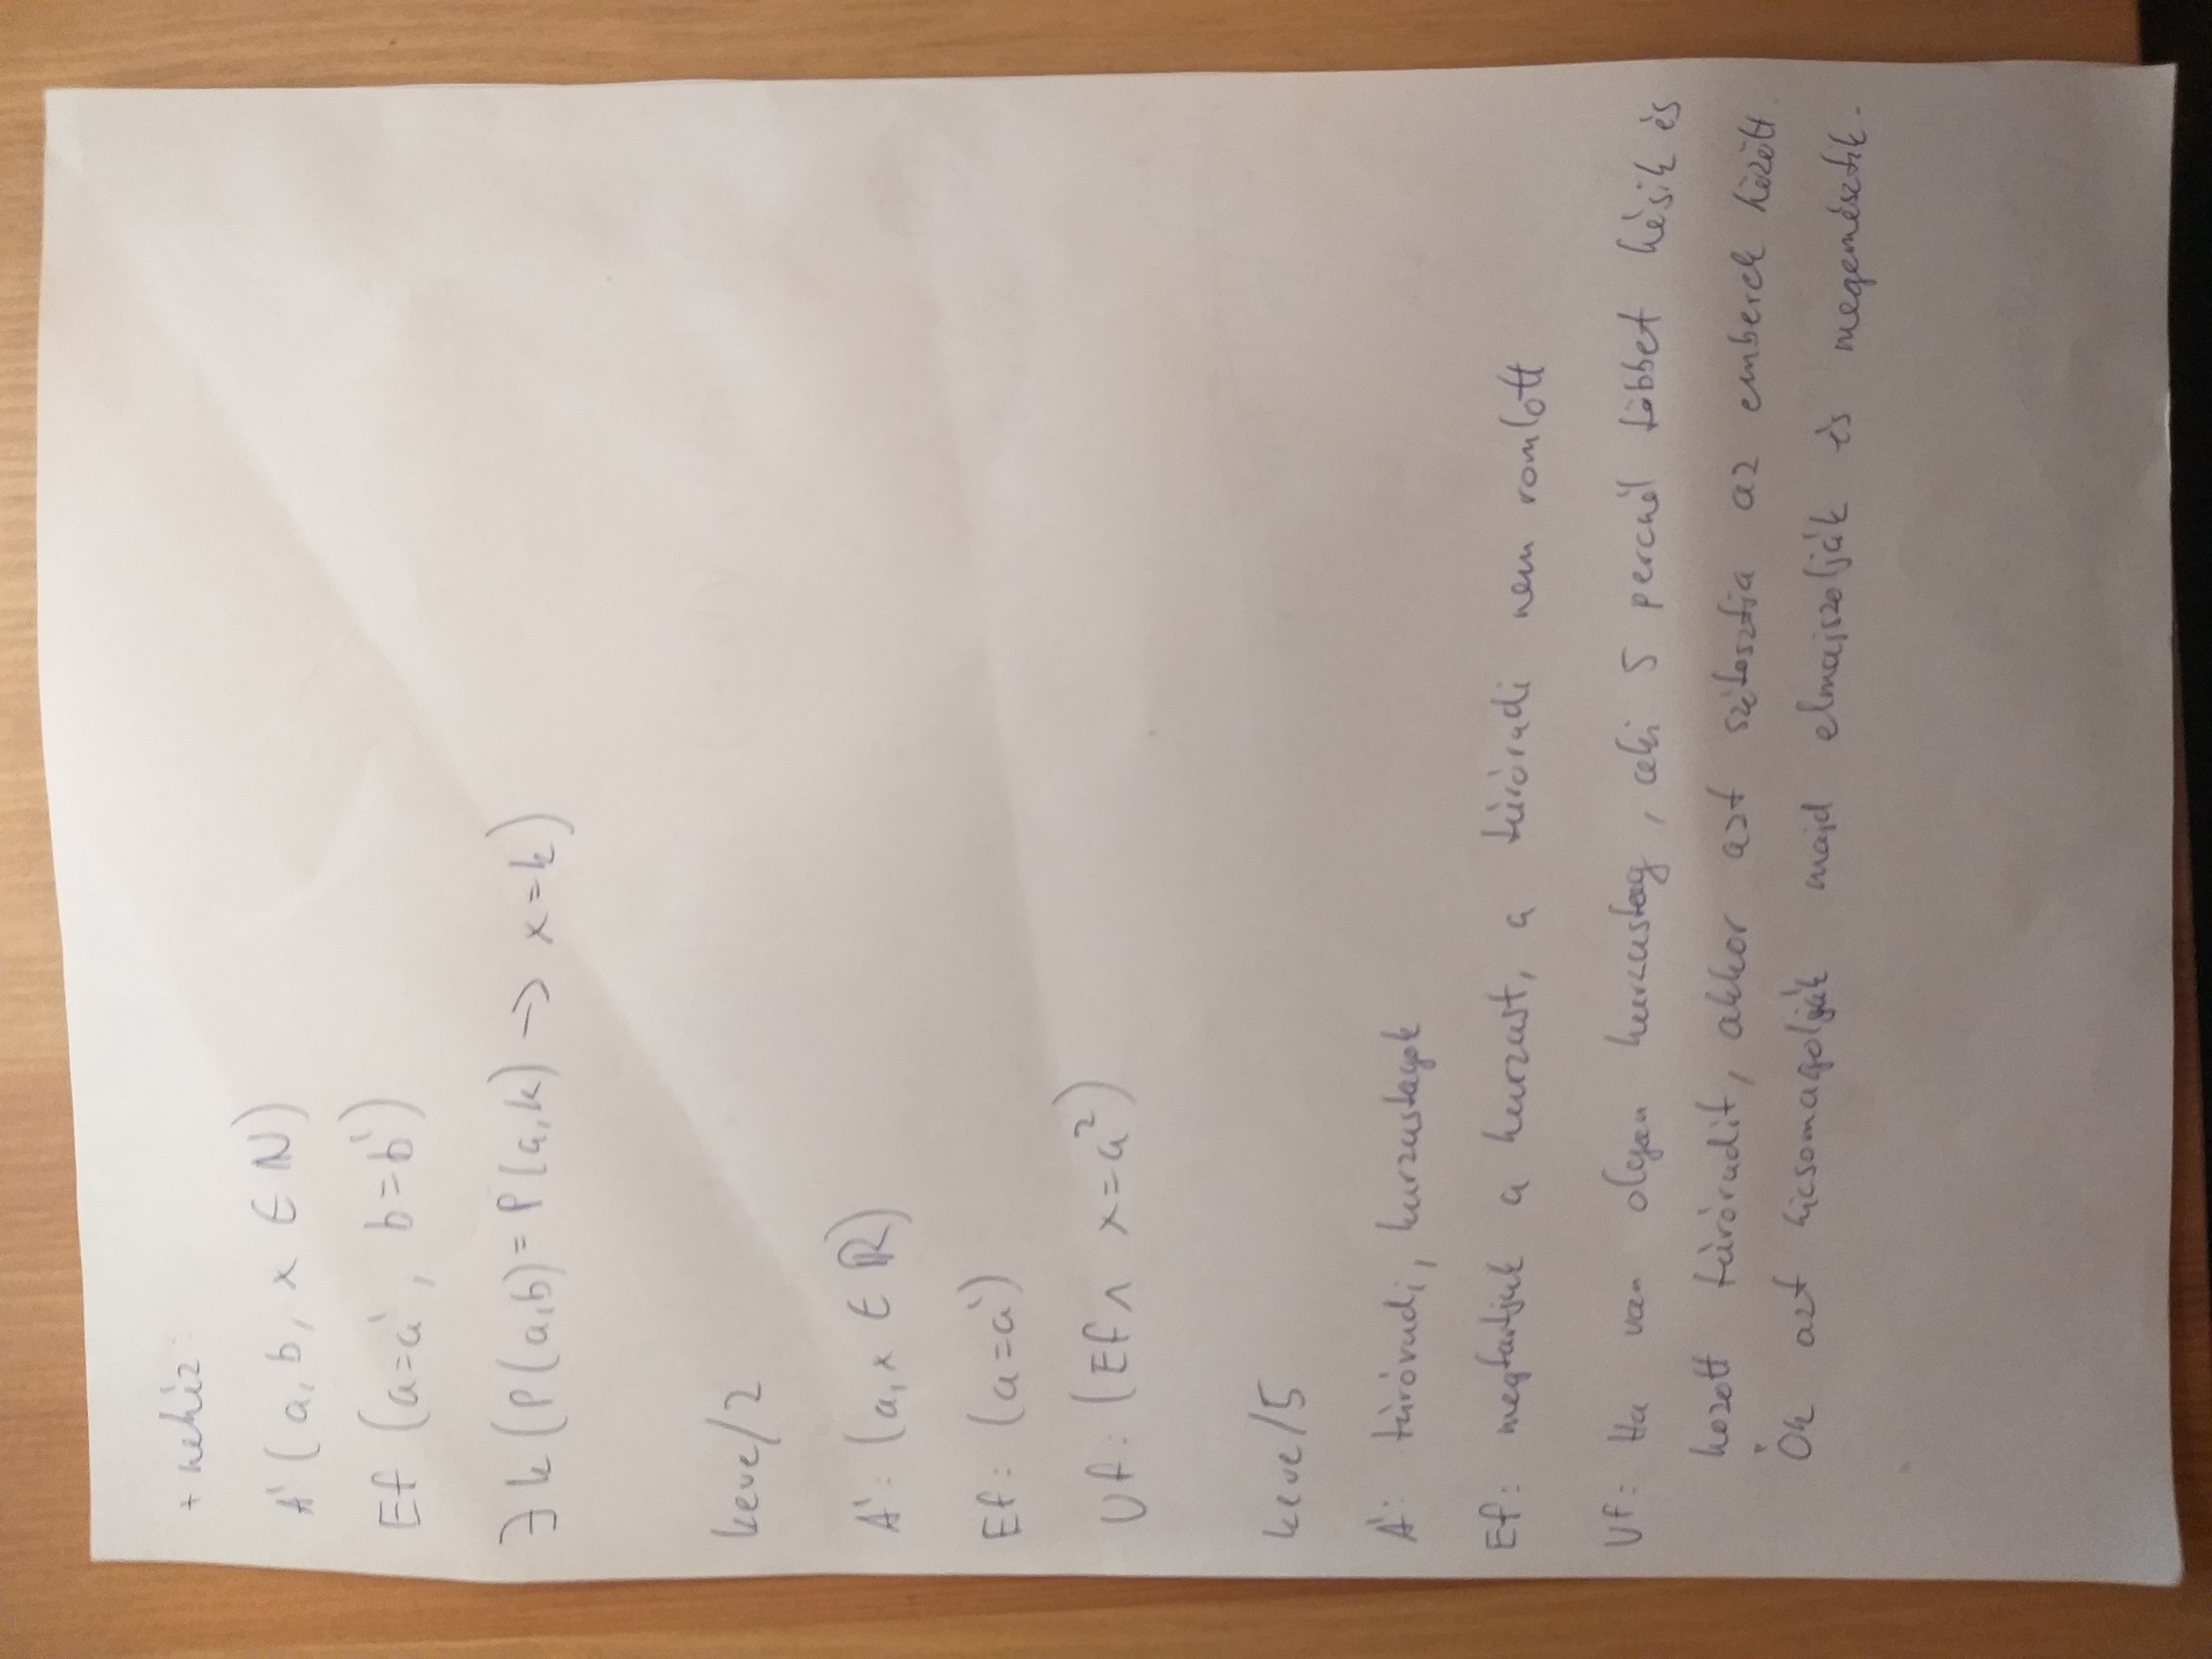 + nehéz:
Á' (a, b, x ∈ ℕ)
Ef (a=a', b=b')
∃ k (P(a,b) = P(a,k) → x=k)
keve/2
Á': (a, x ∈ ℝ)
Ef: (a=a')
Uf: (Ef ∧ x=a²)
keve/5
Á: túrórudi, kurzustagok
Ef: megtartjuk a kurzust, a túrórudi nem romlott
Uf: Ha van olyan kurzustag, aki 5 percnél többet késik és
hozott túrórudit, akkor azt szétosztja az emberek között.
Ők azt kicsomagolják majd elmajszolják és megemésztik.